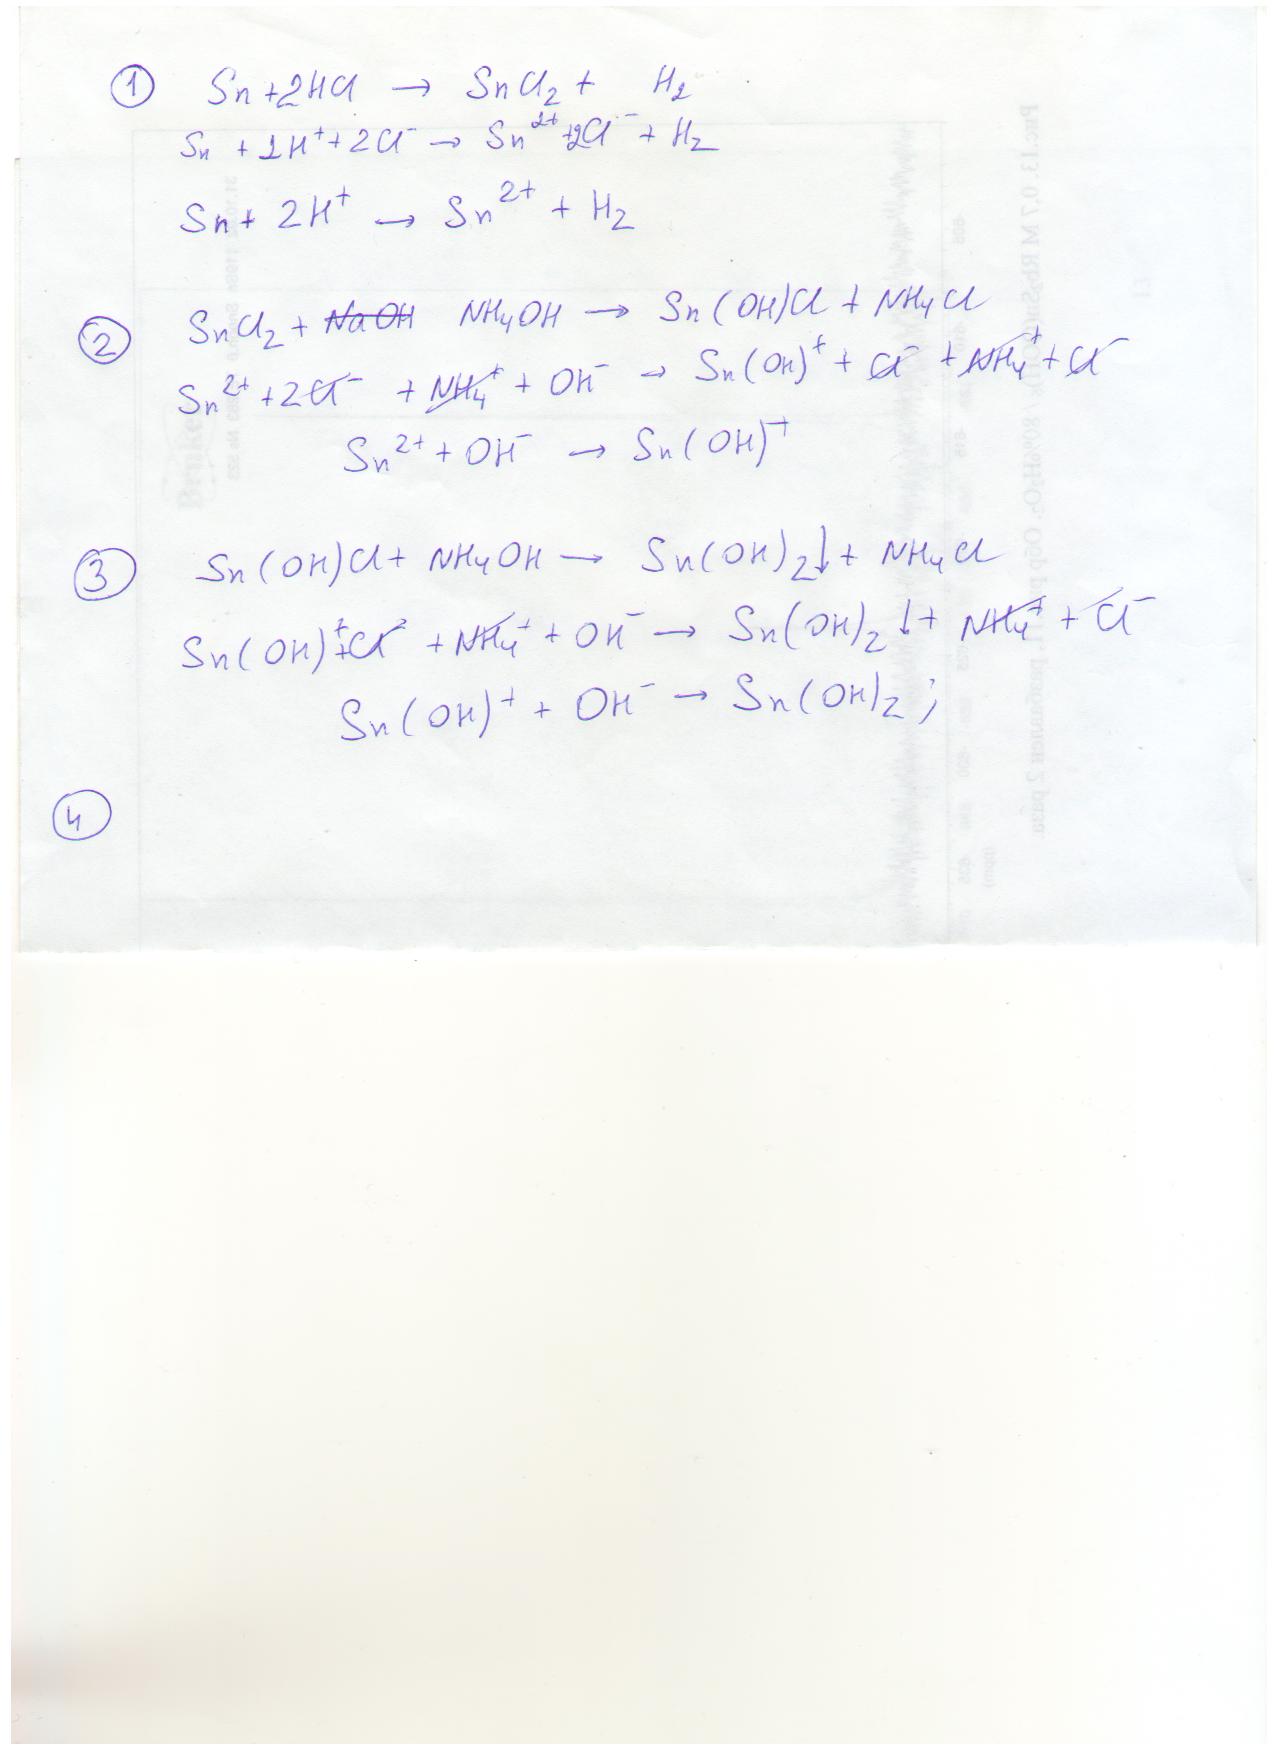 ① Sn + 2HCl → SnCl₂ + H₂
Sn + 2H⁺ + 2Cl⁻ → Sn²⁺ + 2Cl⁻ + H₂
Sn + 2H⁺ → Sn²⁺ + H₂
② SnCl₂ + NaOH NH₄OH → Sn(OH)Cl + NH₄Cl
Sn²⁺ + 2Cl⁻ + NH₄⁺ + OH⁻ → Sn(OH)⁺ + Cl⁻ + NH₄⁺ + Cl⁻
Sn²⁺ + OH⁻ → Sn(OH)⁺
③ Sn(OH)Cl + NH₄OH → Sn(OH)₂↓ + NH₄Cl
Sn(OH)⁺ + Cl⁻ + NH₄⁺ + OH⁻ → Sn(OH)₂↓ + NH₄⁺ + Cl⁻
Sn(OH)⁺ + OH⁻ → Sn(OH)₂;
④
Bruker
13